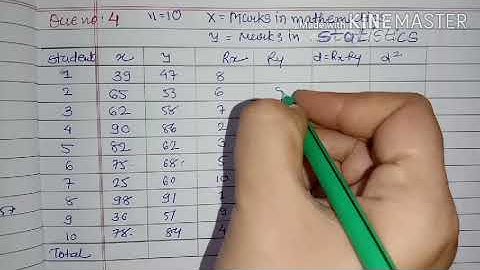 Que no: 4 n=10 X = Marks in mathem
Made with KINEMASTER
y = Marks in STATISTICS
Student x y Rx Ry d=Rx-Ry d²
1 39 47 8
2 65 53 6
3 62 58 7
4 90 86 2
5 82 62 3
6 75 68 5
7 25 60
8 98 91
9 36 51
10 78 84 4
Total